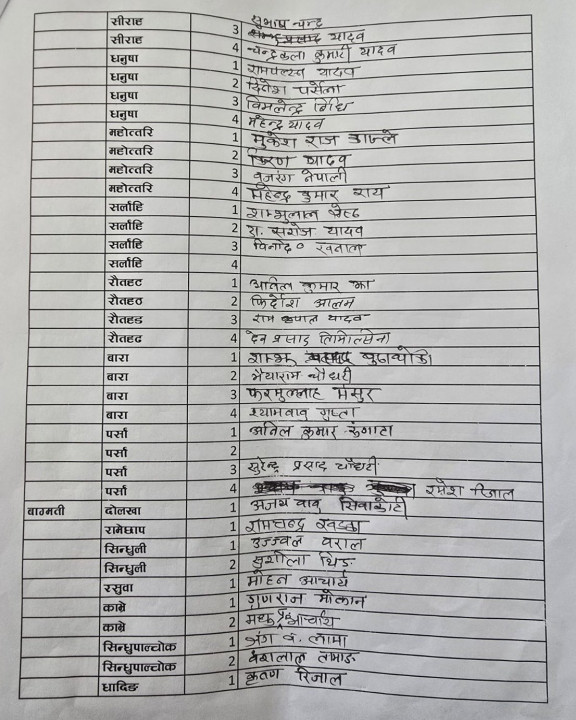 सीराह 3 सुभाष चन्द्र
सीराह 4 चन्द्रकला कुमारी यादव
धनुषा 1 यादव
धनुषा 2 दिनेश पर्सैला
धनुषा 3 विमलेन्द्र निधि
धनुषा 4 महेन्द्र यादव
महोत्तरि 1 मुकेश राज
महोत्तरि 2 किरण यादव
महोत्तरि 3 वजरंग नेपाली
महोत्तरि 4 महेन्द्र कुमार राय
सर्लाहि 1 शम्भुलाल श्रेष्ठ
सर्लाहि 2 डा. सरोज यादव
सर्लाहि 3 विनोद
सर्लाहि 4
रौतहट 1 अनिल कुमार झा
रौतहठ 2 फिर्दोश आलम
रौतहड 3 राम यादव
रौतहढ 4 देव प्रसाद तिमिल्सेना
बारा 1 शम्भु बुढाथोकी
बारा 2 भैयाराम चौधरी
बारा 3 फरमुल्लाह मंसुर
बारा 4 श्यामबाबु गुप्ता
पर्सा 1 अनिल कुमार रुंगटा
पर्सा 2
पर्सा 3 सुरेन्द्र प्रसाद चौधरी
पर्सा 4 रमेश रिजाल
बागमती दोलखा 1 अजय बाबु सिवाकोटी
रामेछाप 1 रामचन्द्र खड्का
सिन्धुली 1 उज्ज्वल बराल
सिन्धुली 2 सुशीला थिङ
रसुवा 1 मोहन आचार्य
काभ्रे 1 गुणराज मोक्तान
काभ्रे 2 मधु आचार्य
सिन्धुपाल्चोक 1 जंग व. लामा
सिन्धुपाल्चोक 2 वंशलाल तामाङ
धादिङ 1 रिजाल